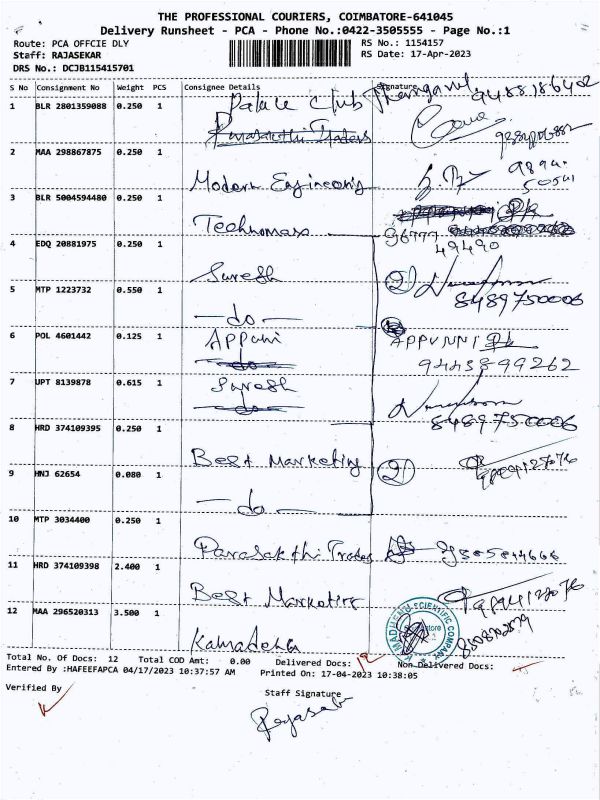 THE PROFESSIONAL COURIERS, COIMBATORE-641045
Delivery Runsheet - PCA - Phone No.:0422-3505555 - Page No.:1
Route: PCA OFFCIE DLY
RS No.: 1154157
Staff: RAJASEKAR
RS Date: 17-Apr-2023
DRS No.: DCJB115415701
S No Consignment No Weight PCS Consignee Details Signature
1 BLR 2801359088 0.250 1 Palace Club
Parasakthi Traders
2 MAA 298867875 0.250 1
Modern Engineering
3 BLR 5004594480 0.250 1
Technomax 96777
49490
4 EDQ 20881975 0.250 1
Suresh 2
5 MTP 1223732 0.550 1 8489750006
-do-
6 POL 4601442 0.125 1 Appuni APPUNNI
do 9443899262
7 UPT 8139878 0.615 1 Suresh
do 8489750006
8 HRD 374109395 0.250 1
Best Marketing 2
9 HNJ 62654 0.080 1
-do-
10 MTP 3034400 0.250 1
Parasakthi Trades
11 HRD 374109398 2.400 1
Best Marketing
12 MAA 296520313 3.500 1
Kamadenu
KAMADHENU SCIENTIFIC COMPANY
Total No. Of Docs: 12 Total COD Amt: 0.00 Delivered Docs: 12 Non Delivered Docs:
Entered By :HAFEEFAPCA 04/17/2023 10:37:57 AM Printed On: 17-04-2023 10:38:05
Verified By
Staff Signature